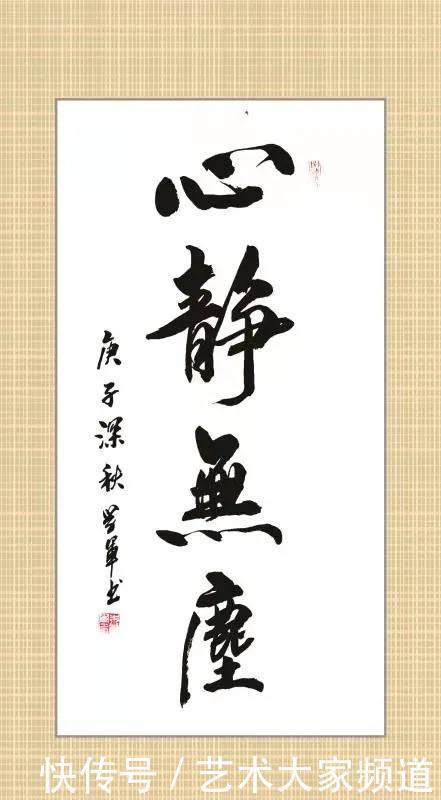 心靜無塵
庚子深秋
书
快传号 / 艺术大家频道